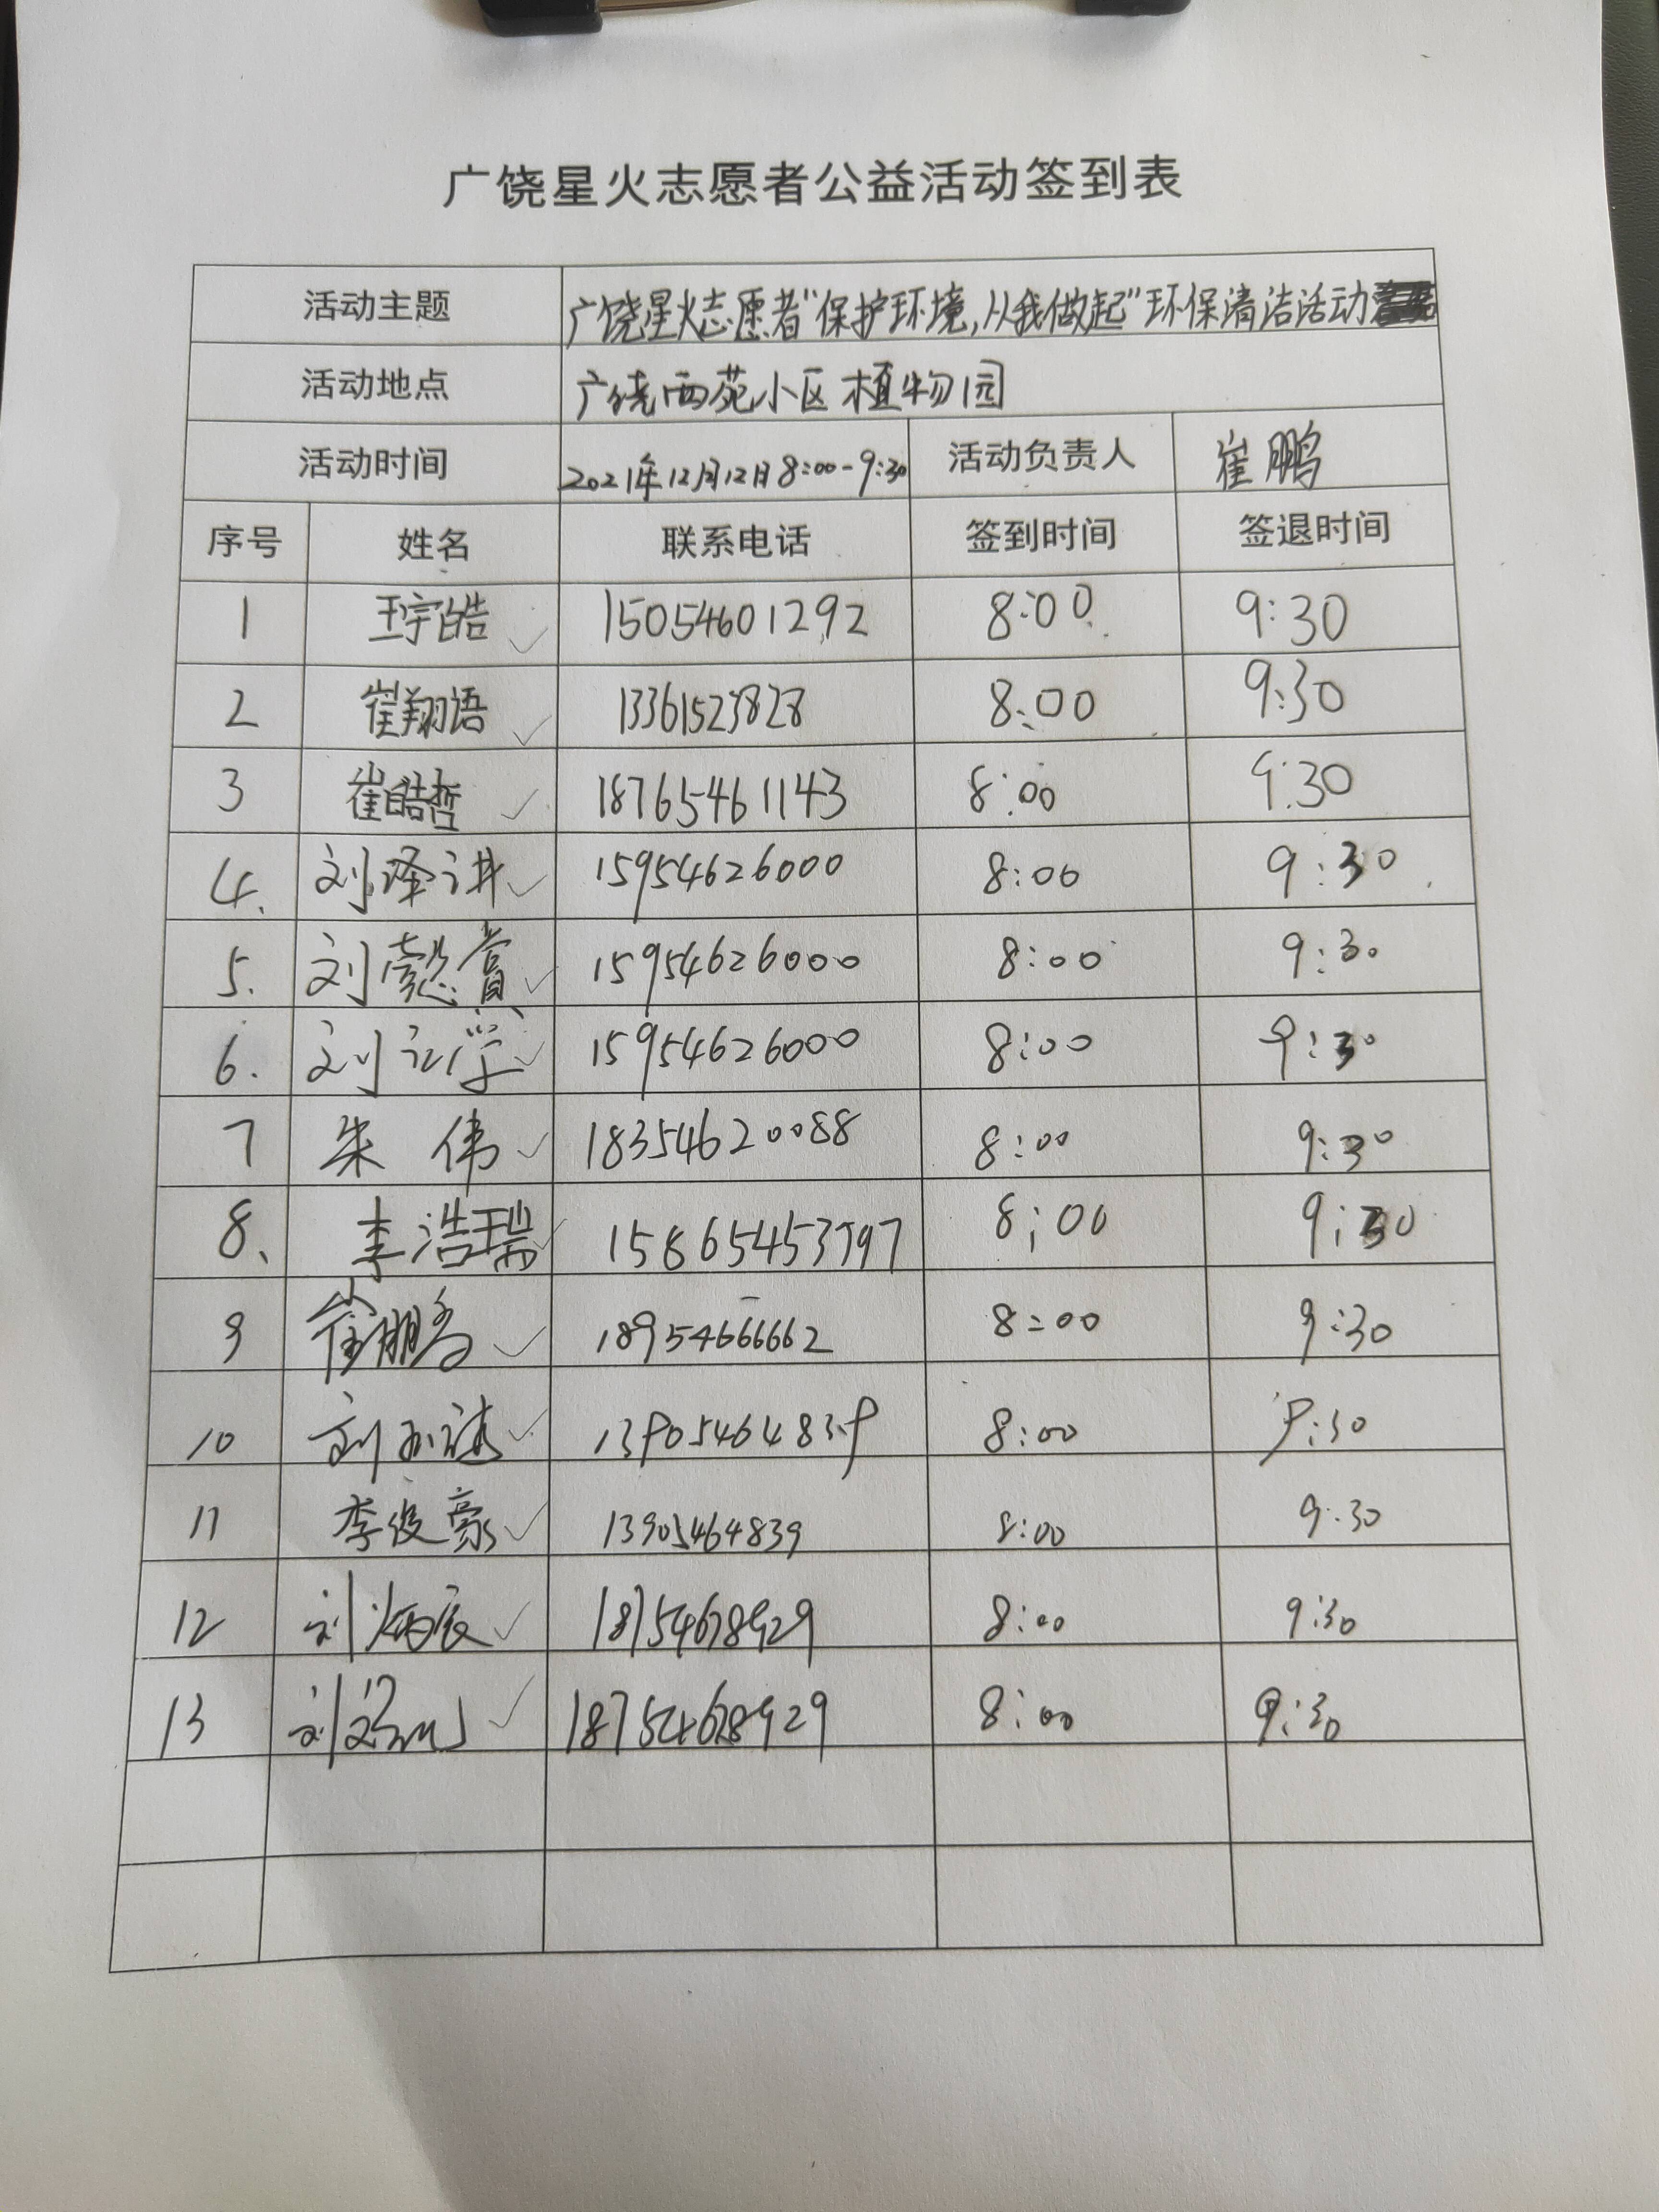 广饶星火志愿者公益活动签到表
活动主题 广饶星火志愿者"保护环境,从我做起"环保清洁活动
活动地点 广饶西苑小区植物园
活动时间 2021年12月12日8:00-9:30 活动负责人 崔鹏
序号 姓名 联系电话 签到时间 签退时间
1 王宇皓 15054601292 8:00 9:30
2 崔翔语 13361523828 8:00 9:30
3 崔皓哲 18765461143 8:00 9:30
4. 刘泽讲 15954626000 8:00 9:30
5. 刘懿萱 15954626000 8:00 9:30
6. 刘 15954626000 8:00 9:30
7 朱伟 18354620088 8:00 9:30
8、 李浩瑞 15865453797 8:00 9:30
9 崔鹏 18954666662 8:00 9:30
10 刘 13905464839 8:00 9:30
11 李俊豪 13905464839 8:00 9:30
12 刘炳辰 18754678929 8:00 9:30
13 刘 18754678929 8:00 9:30